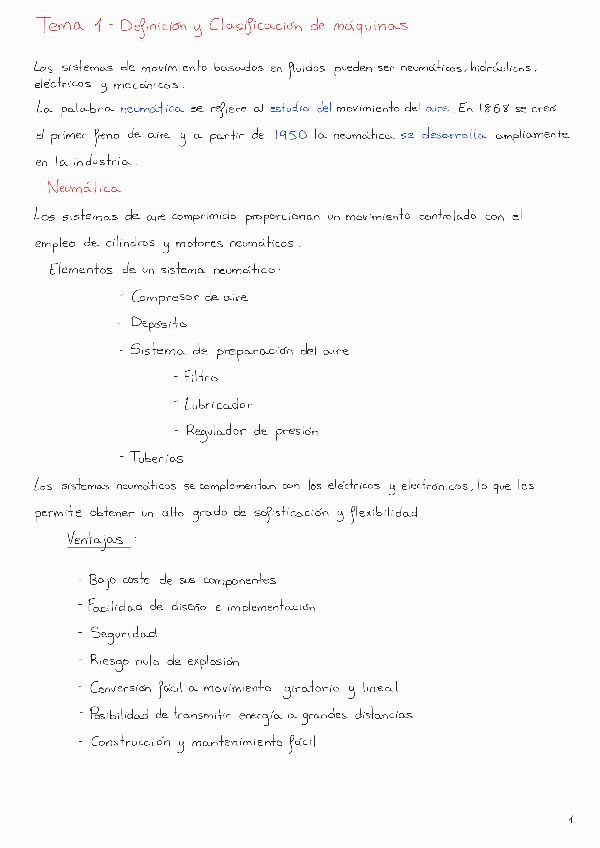 Tema 1 - Definición y Clasificación de máquinas
Los sistemas de movimiento basados en fluidos pueden ser neumáticos, hidráulicos,
eléctricos y mecánicos.
La palabra neumática se refiere al estudio del movimiento del aire. En 1868 se creó
el primer freno de aire y a partir de 1950 la neumática se desarrolla ampliamente
en la industria.
Neumática
Los sistemas de aire comprimido proporcionan un movimiento controlado con el
empleo de cilindros y motores neumáticos.
Elementos de un sistema neumático:
- Compresor de aire
- Depósito
- Sistema de preparación del aire
- Filtro
- Lubricador
- Regulador de presión
- Tuberías
Los sistemas neumáticos se complementan con los eléctricos y electrónicos, lo que les
permite obtener un alto grado de sofisticación y flexibilidad
Ventajas:
- Bajo coste de sus componentes
- Facilidad de diseño e implementación
- Seguridad
- Riesgo nulo de explosión
- Conversión fácil a movimiento giratorio y lineal
- Posibilidad de transmitir energía a grandes distancias
- Construcción y mantenimiento fácil
1